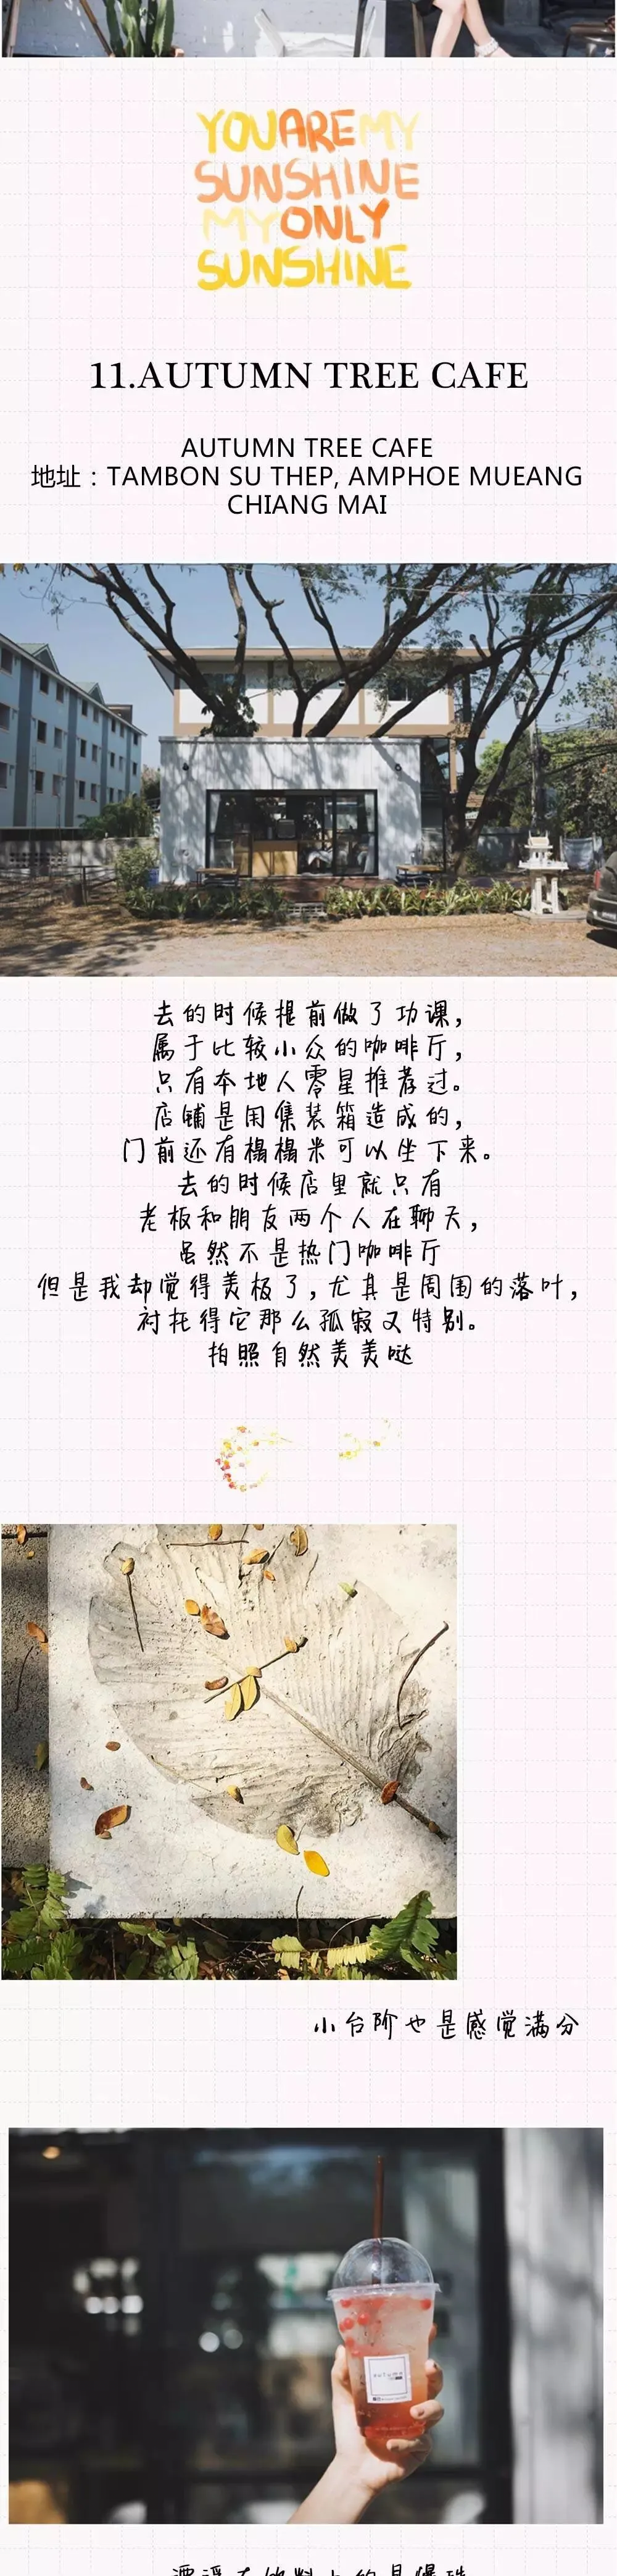 YOU ARE MY
SUNSHINE
MY ONLY
SUNSHINE
11.AUTUMN TREE CAFE
AUTUMN TREE CAFE
地址：TAMBON SU THEP, AMPHOE MUEANG
CHIANG MAI
去的时候提前做了功课，
属于比较小众的咖啡厅，
只有本地人零星推荐过。
店铺是用集装箱造成的，
门前还有榻榻米可以坐下来。
去的时候店里就只有
老板和朋友两个人在聊天，
虽然不是热门咖啡厅
但是我却觉得美极了，尤其是周围的落叶，
衬托得它那么孤寂又特别。
拍照自然美美哒
小台阶也是感觉满分
autumn